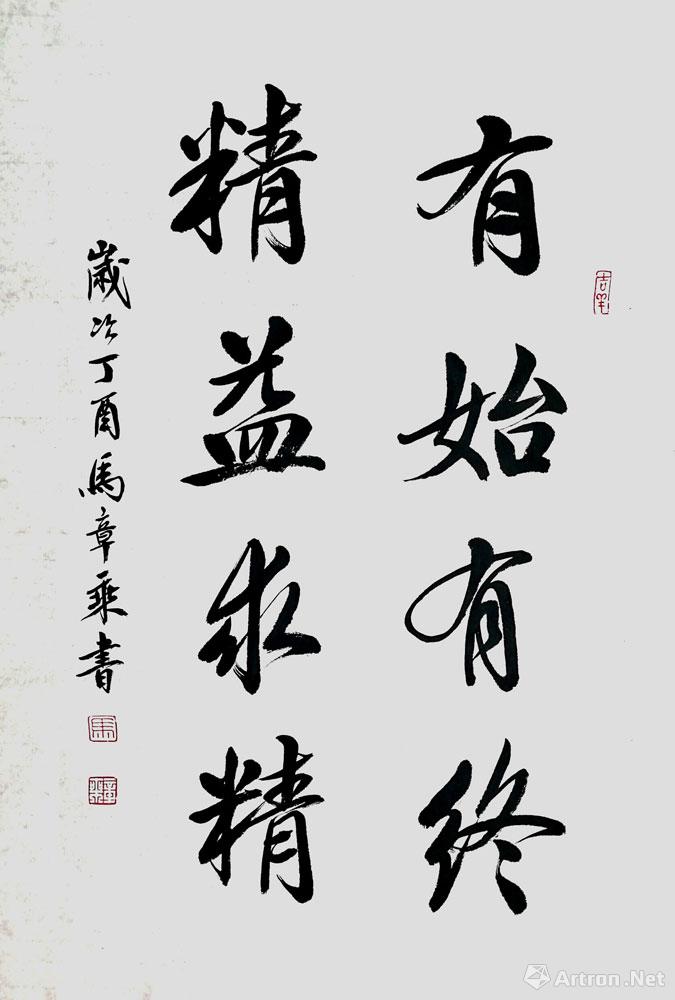 有始有终
精益求精
歲次丁酉馬章乘書
Artron.Net